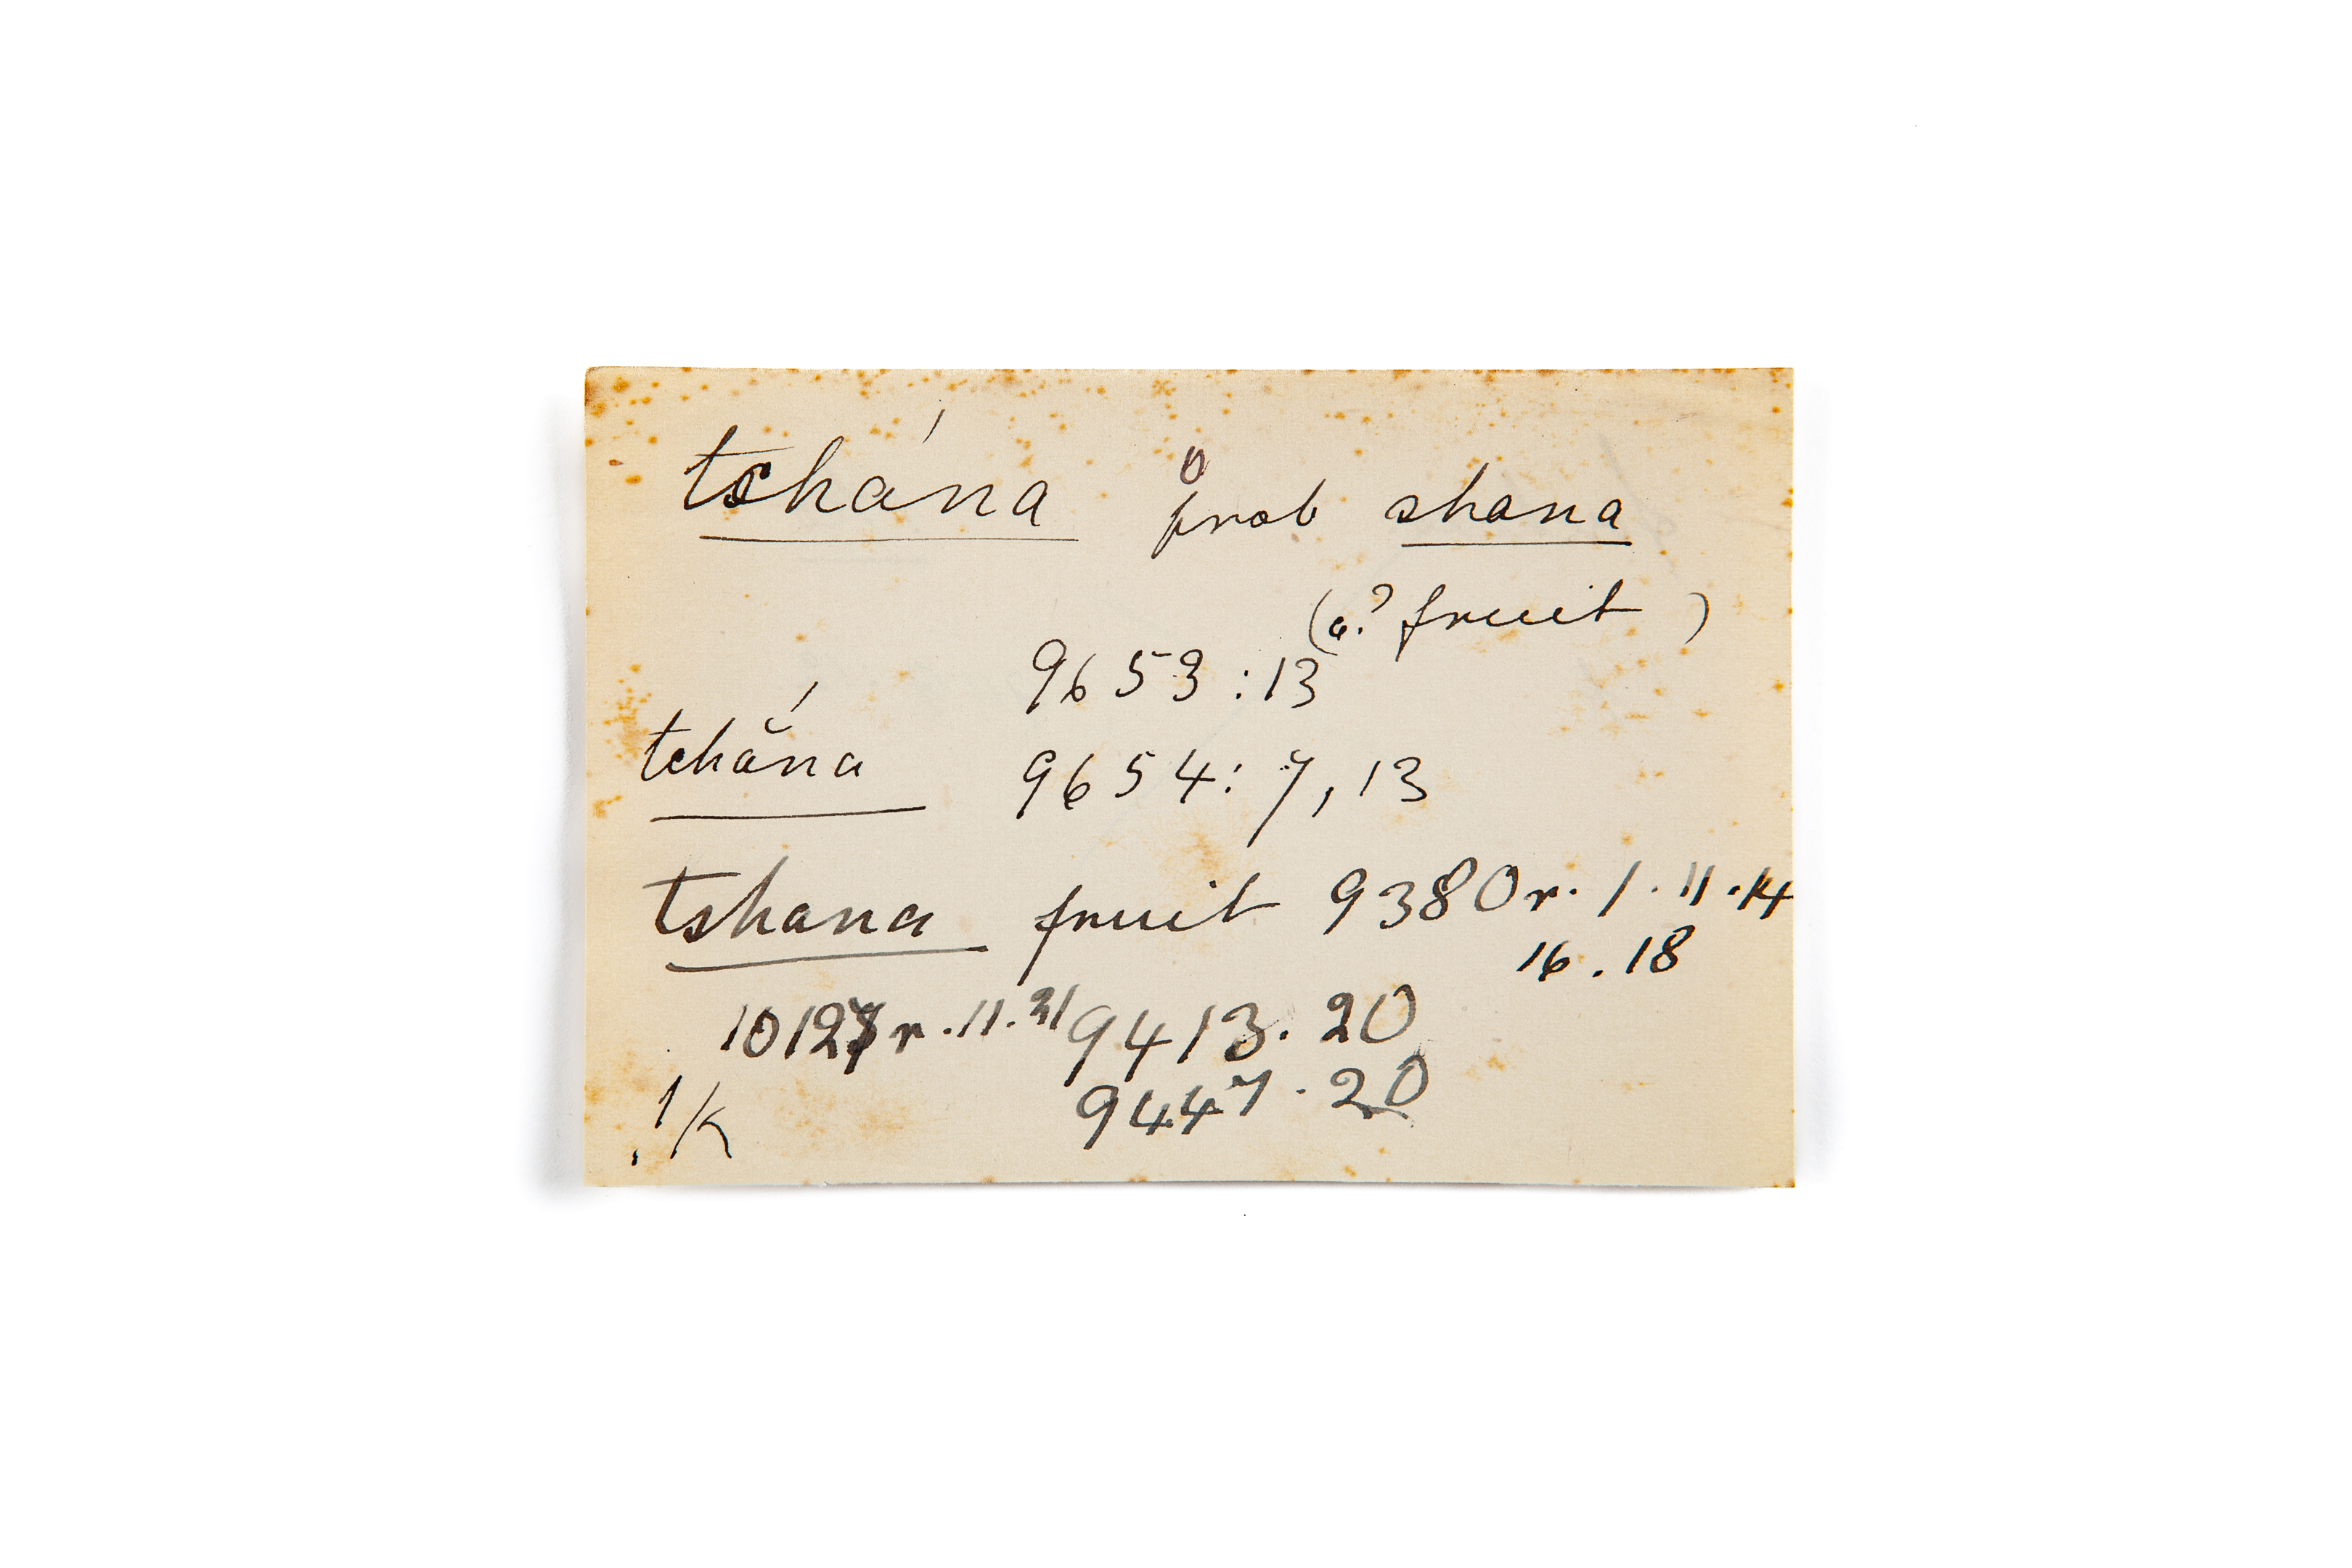 tshána prob shana
(a? fruit )
9653 : 13
tchăńa 9654 : 7, 13
tshana fruit 9380 r. 1. 11. 14
16. 18
10127 r. 11. 31 9413. 20
!k 9447. 20